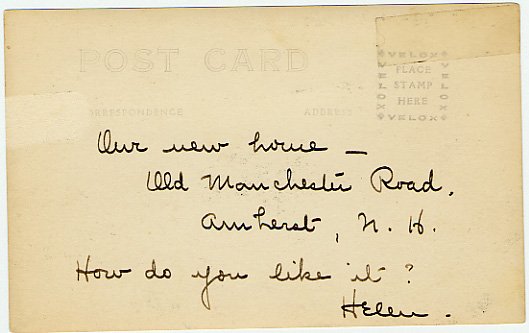 POST CARD
VELOX
VELOX
VELOX
PLACE
STAMP
HERE
VELOX
CORRESPONDENCE
ADDRESS
Our new home —
Old Manchester Road,
Amherst, N. H.
How do you like it?
Helen.